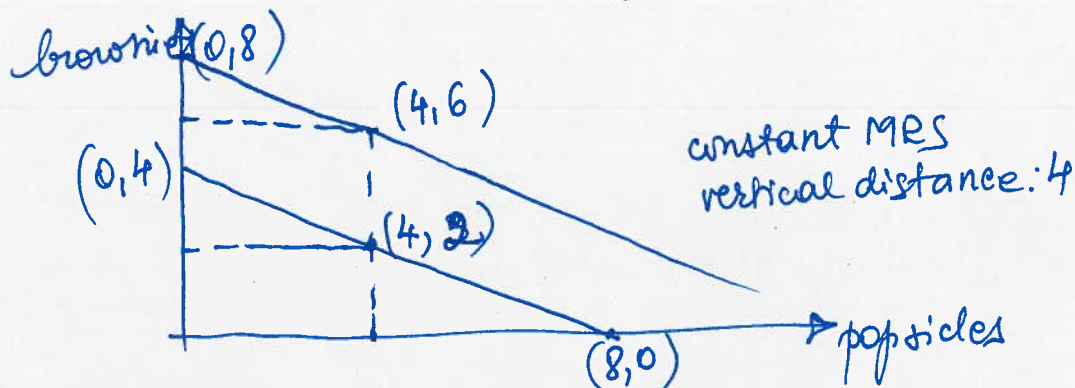 brownies (0,8)
(4,6)
constant MRS
vertical distance: 4
(0,4)
(4,2)
popsicles
(8,0)